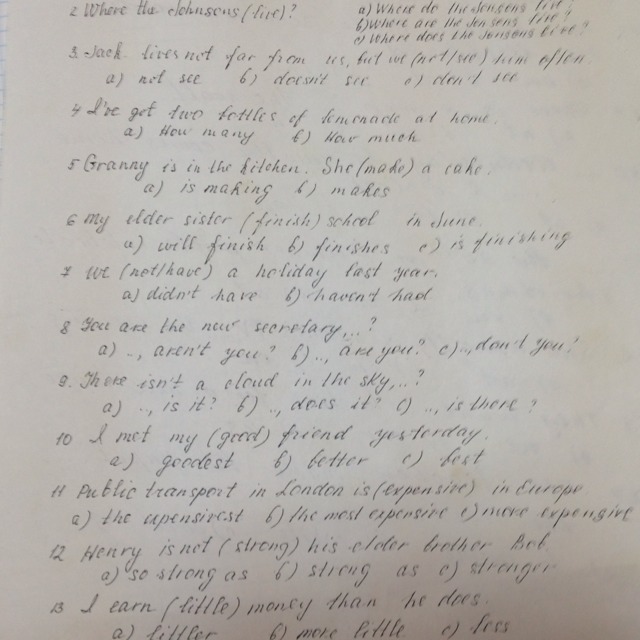 2. Where the Johnsons (live)? a) Where do the Jonsons live?
b) Where are the Jonsons live?
c) Where does the Jonsons live?
3. Jack lives not far from us, but we (not/see) him often.
a) not see b) doesn't see c) don't see
4 I've got two bottles of lemonade at home.
a) How many b) How much
5 Granny is in the kitchen. She (make) a cake.
a) is making b) makes
6 My elder sister (finish) school in June.
a) will finish b) finishes c) is finishing
7 We (not/have) a holiday last year.
a) didn't have b) haven't had
8 You are the new secretary,...?
a) .., aren't you? b) .., are you? c) .., don't you?
9. There isn't a cloud in the sky,..?
a) .., is it? b) .., does it? c) .., is there?
10 I met my (good) friend yesterday.
a) goodest b) better c) best
11 Public transport in London is (expensive) in Europe
a) the expensivest b) the most expensive c) more expensive
12 Henry is not (strong) his elder brother Bob.
a) so strong as b) strong as c) stronger
13 I earn (little) money than he does.
a) littler b) more little c) less